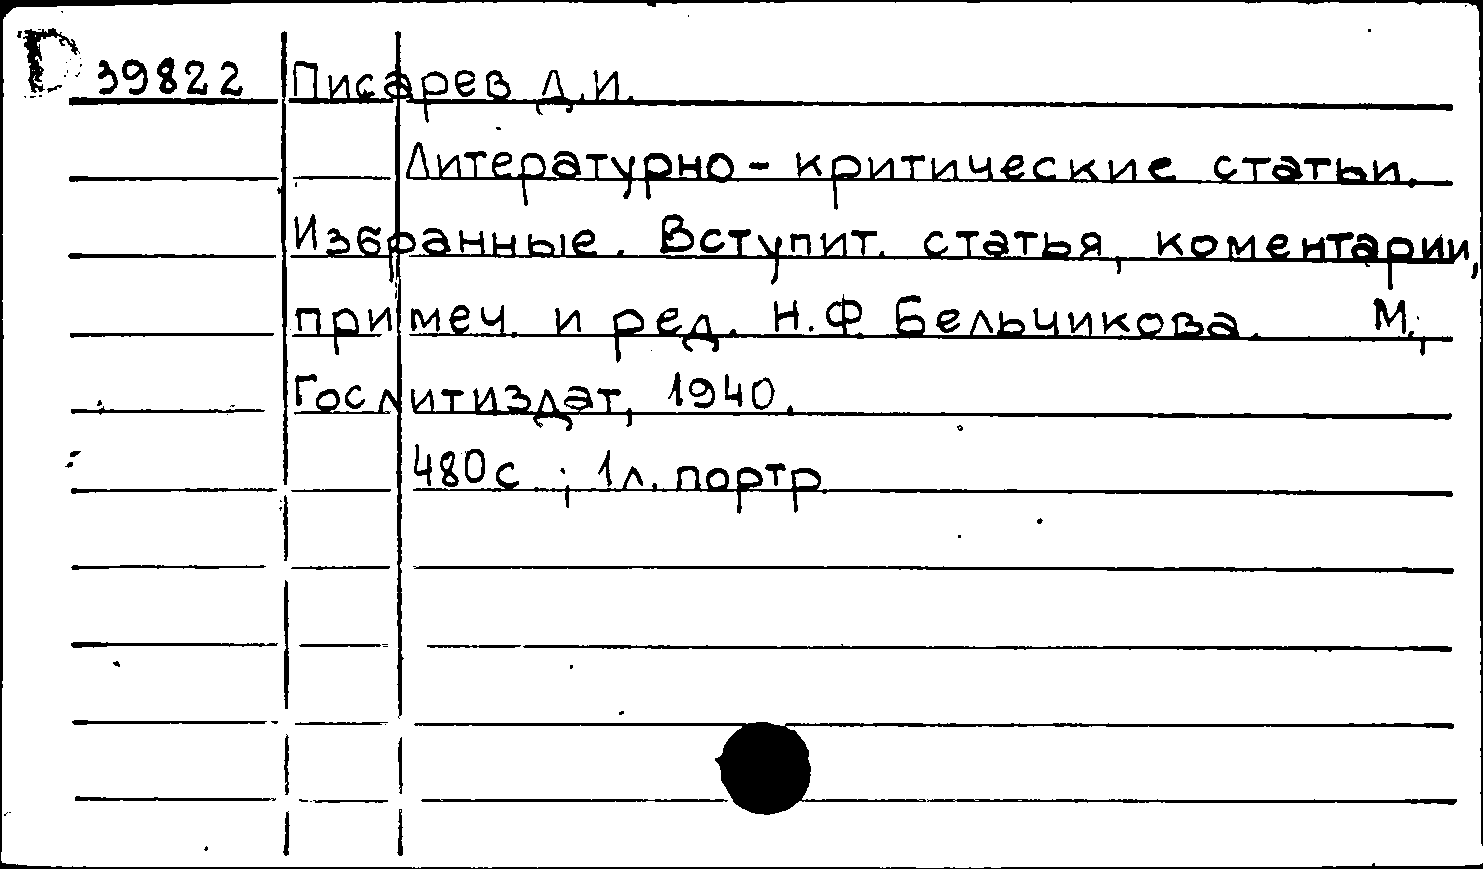 D 39822 Писарев Д.И.
Литературно-критические статьи.
Избранные. Вступит. статья, коментарии,
примеч. и ред. Н.Ф Бельчикова. М.,
Гослитиздат, 1940.
480с.; 1л. портр